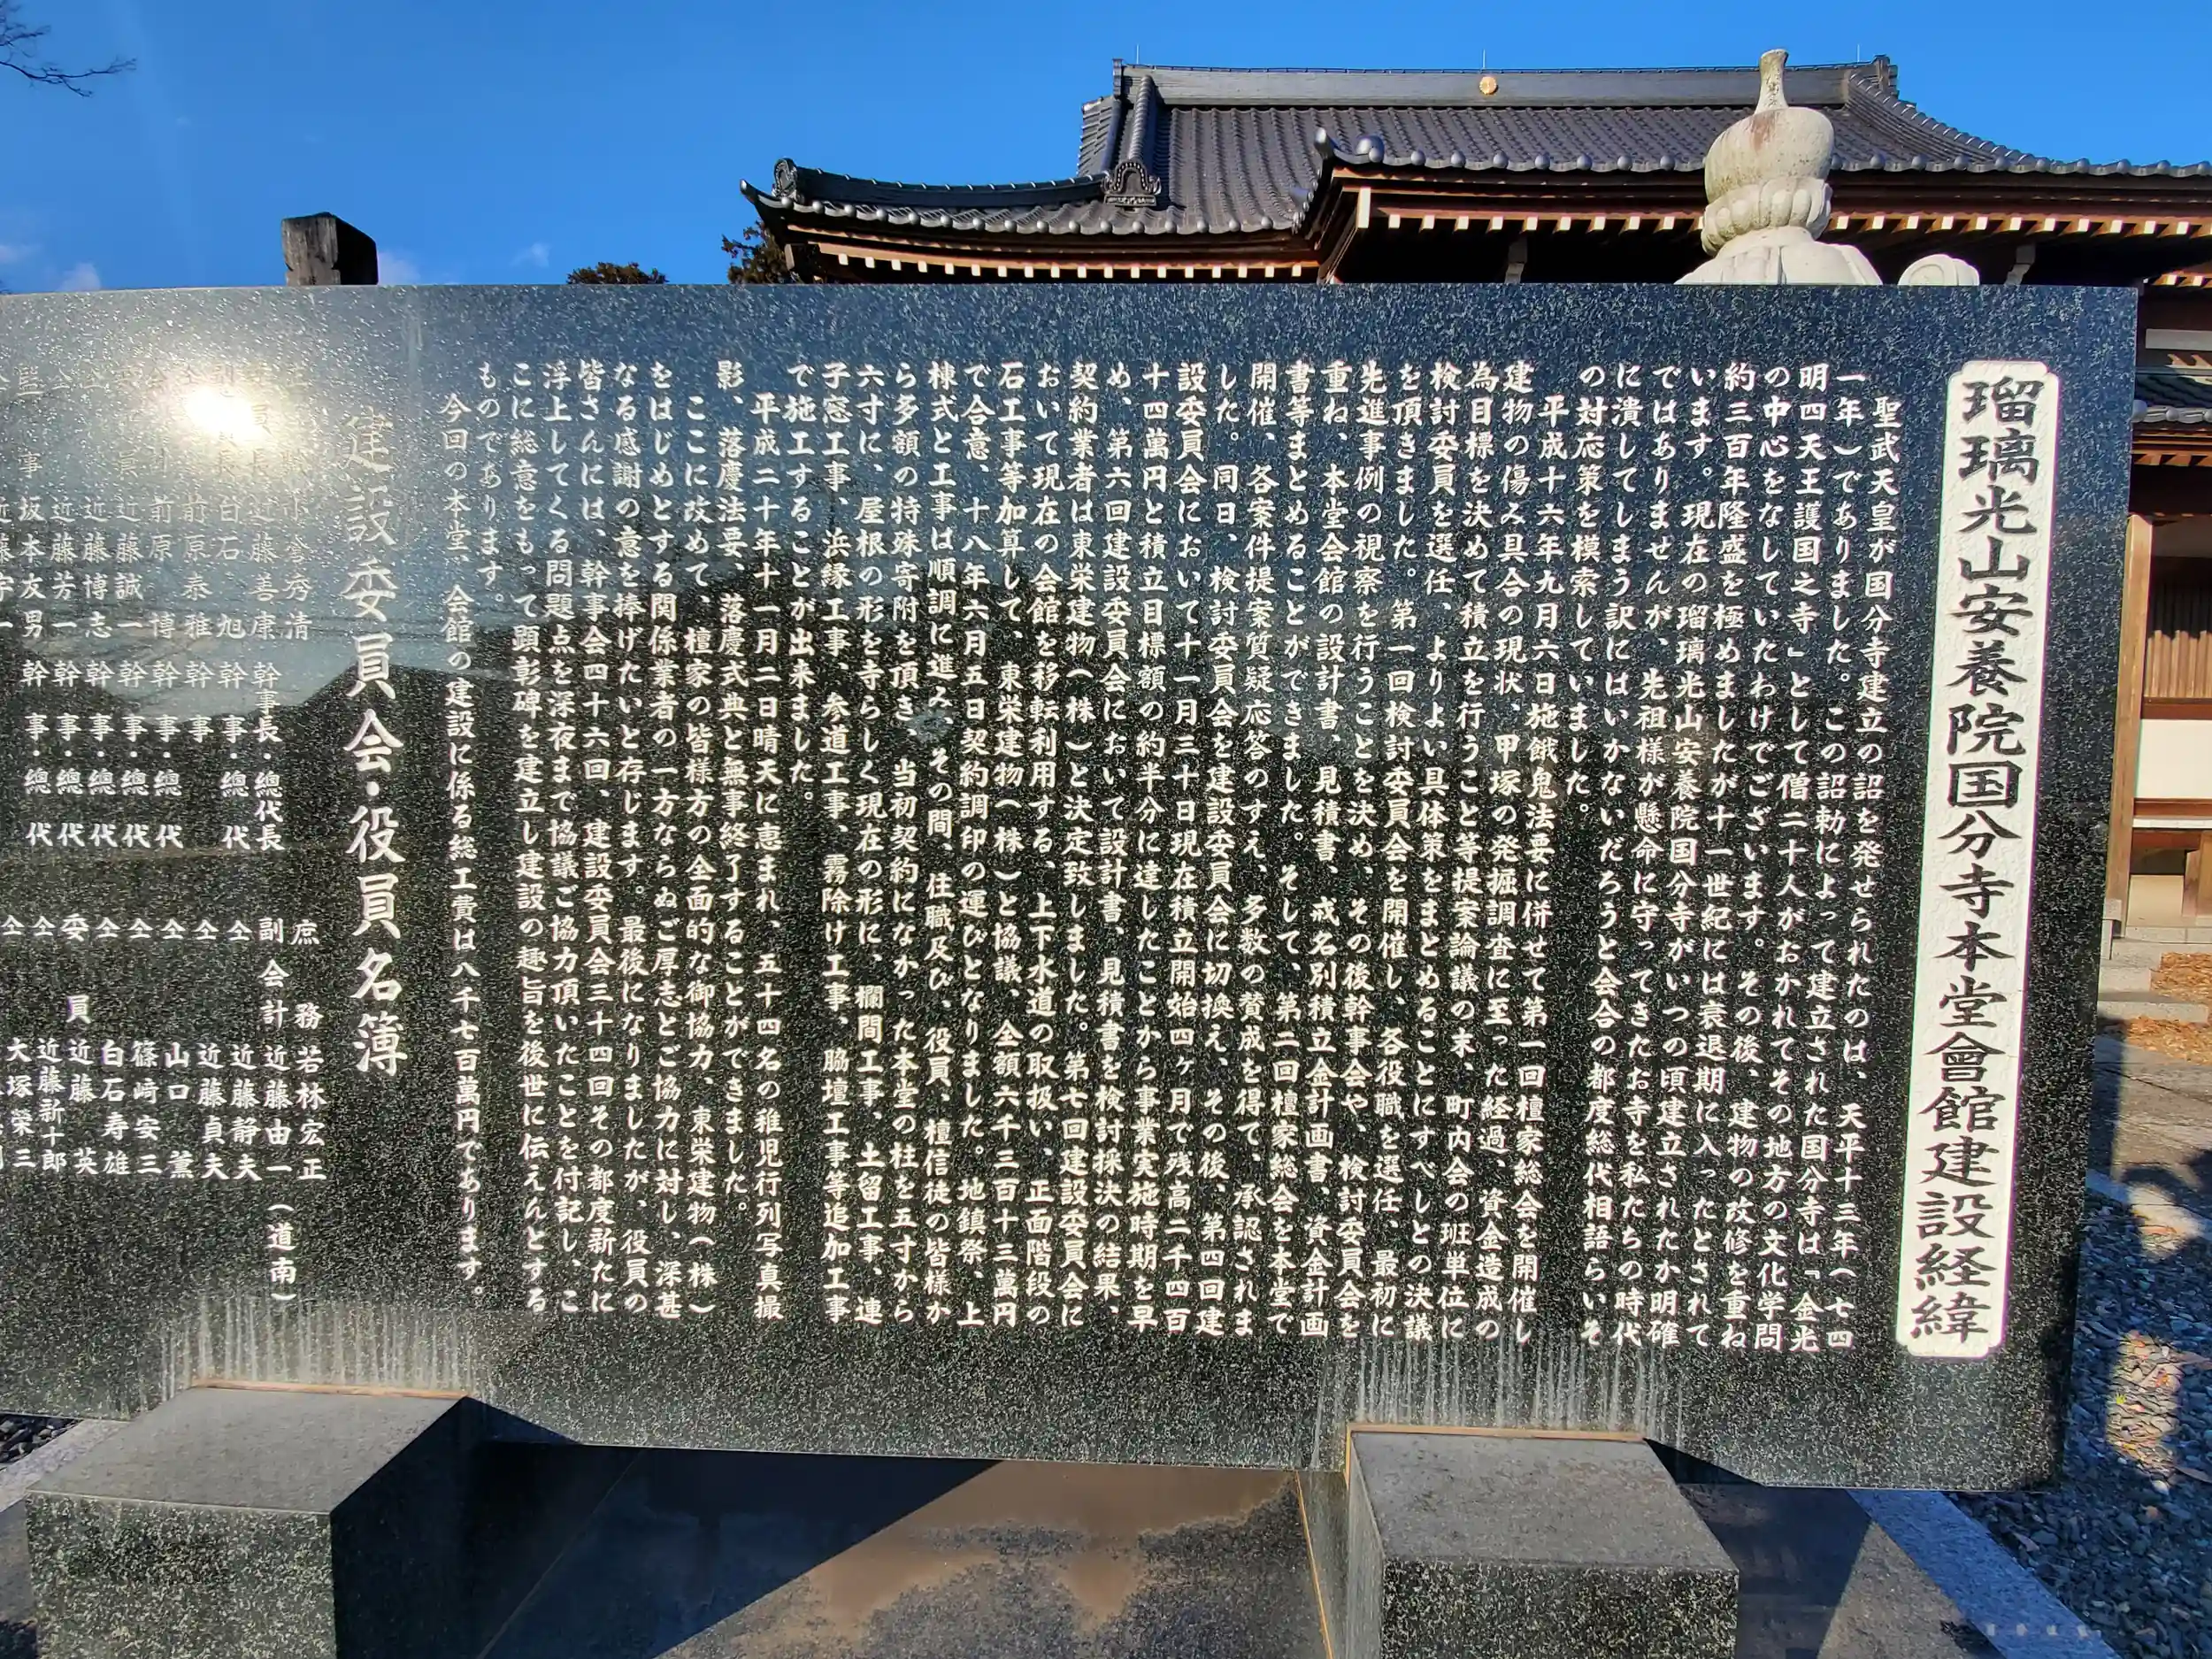 瑠璃光山安養院国分寺本堂會館建設経緯
聖武天皇が国分寺建立の詔を発せられたのは、天平十三年(七四
一年)でありました。この詔勅によって建立された国分寺は『金光
明四天王護国之寺」として僧二十人がおかれてその地方の文化学問
の中心をなしていたわけでございます。その後、建物の改修を重ね
約三百年隆盛を極めましたが十一世紀には衰退期に入ったとされて
います。現在の瑠璃光山安養院国分寺がいつの頃建立されたか明確
ではありませんが、先祖様が懸命に守ってきたお寺を私たちの時代
に潰してしまう訳にはいかないだろうと会合の都度総代相語らいそ
の対応策を模索していました。
平成十六年九月六日施餓鬼法要に併せて第一回檀家総会を開催し
建物の傷み具合の現状、甲塚の発掘調査に至った経過、資金造成の
為目標を決めて積立を行うこと等提案論議の末、町内会の班単位に
検討委員を選任、よりよい具体策をまとめることにすべしとの決議
を頂きました。第一回検討委員会を開催し、各役職を選任、最初に
先進事例の視察を行うことを決め、その後幹事会や、検討委員会を
重ね、本堂会館の設計書、見積書、戒名別積立金計画書、資金計画
書等まとめることができました。そして、第二回檀家総会を本堂で
開催、各案件提案質疑応答のすえ、多数の賛成を得て、承認されま
した。同日、検討委員会を建設委員会に切換え、その後、第四回建
設委員会において十一月三十日現在積立開始四ヶ月で残高二千四百
十四萬円と積立目標額の約半分に達したことから事業実施時期を早
め、第六回建設委員会において設計書、見積書を検討採決の結果、
契約業者は東栄建物(株)と決定致しました。第七回建設委員会に
おいて現在の会館を移転利用する、上下水道の取扱い、正面階段の
石工事等加算して、東栄建物(株)と協議、全額六千三百十三萬円
で合意、十八年六月五日契約調印の運びとなりました。地鎮祭、上
棟式と工事は順調に進み、その間、住職及び、役員、檀信徒の皆様か
ら多額の特殊寄附を頂き、当初契約になかった本堂の柱を五寸から
六寸に、屋根の形を寺らしく現在の形に、欄間工事、土留工事、連
子窓工事、浜縁工事、参道工事、霧除け工事、脇壇工事等追加工事
で施工することが出来ました。
平成二十年十一月二日晴天に恵まれ、五十四名の稚児行列写真撮
影、落慶法要、落慶式典と無事終了することができました。
ここに改めて、檀家の皆様方の全面的な御協力、東栄建物(株)
をはじめとする関係業者の一方ならぬご厚志とご協力に対し、深甚
なる感謝の意を捧げたいと存じます。最後になりましたが、役員の
皆さんには、幹事会四十六回、建設委員会三十四回その都度新たに
浮上してくる問題点を深夜まで協議ご協力頂いたことを付記し、こ
こに総意をもって顕彰碑を建立し建設の趣旨を後世に伝えんとする
ものであります。
今回の本堂、会館の建設に係る総工費は八千七百萬円であります。
建設委員会・役員名簿
秀清
近藤善康 幹事長・總代長
白石 旭 幹事・總代
前原泰雅 幹事
近藤博志 幹事・總代
近藤芳一 幹事・總代
前原 博 幹事・總代
近藤誠一 幹事・總代
坂本友男 幹事・總代
庶務 若林宏正
副会計 近藤由一(道南)
仝 近藤静夫
仝 近藤貞夫
仝 山口 薫
仝 篠崎安三
仝 白石寿雄
委員 近藤 英
仝 近藤新十郎
仝 大塚榮三